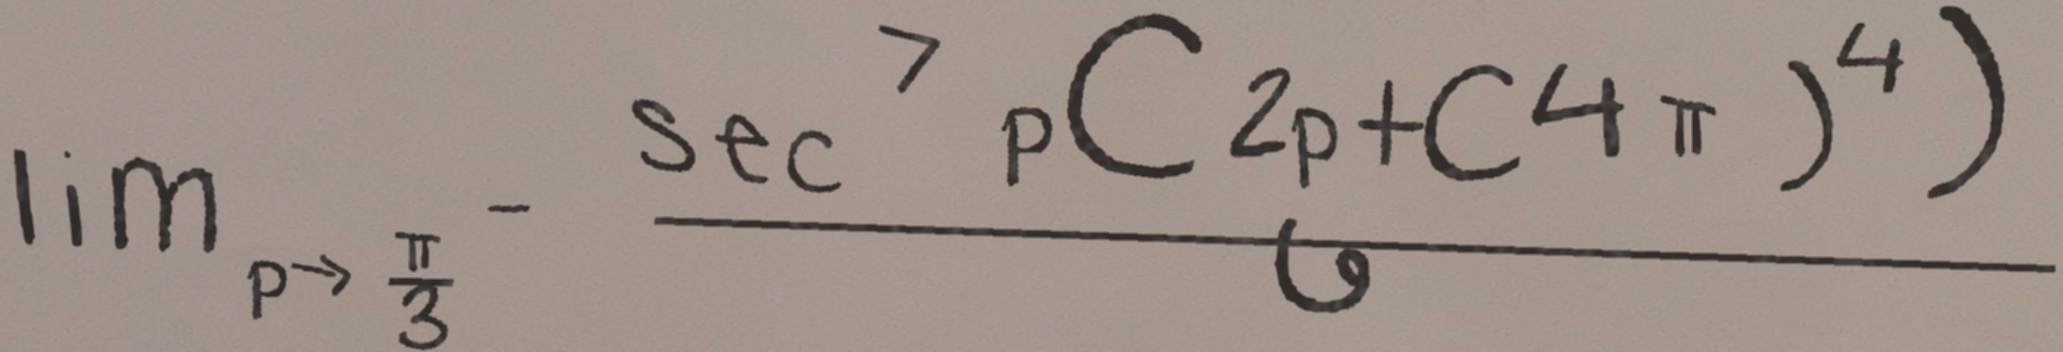 \lim_{p \to \frac{\pi}{3}^{-}} \frac{\sec^{7} p(2p+(4\pi)^{4})}{6}